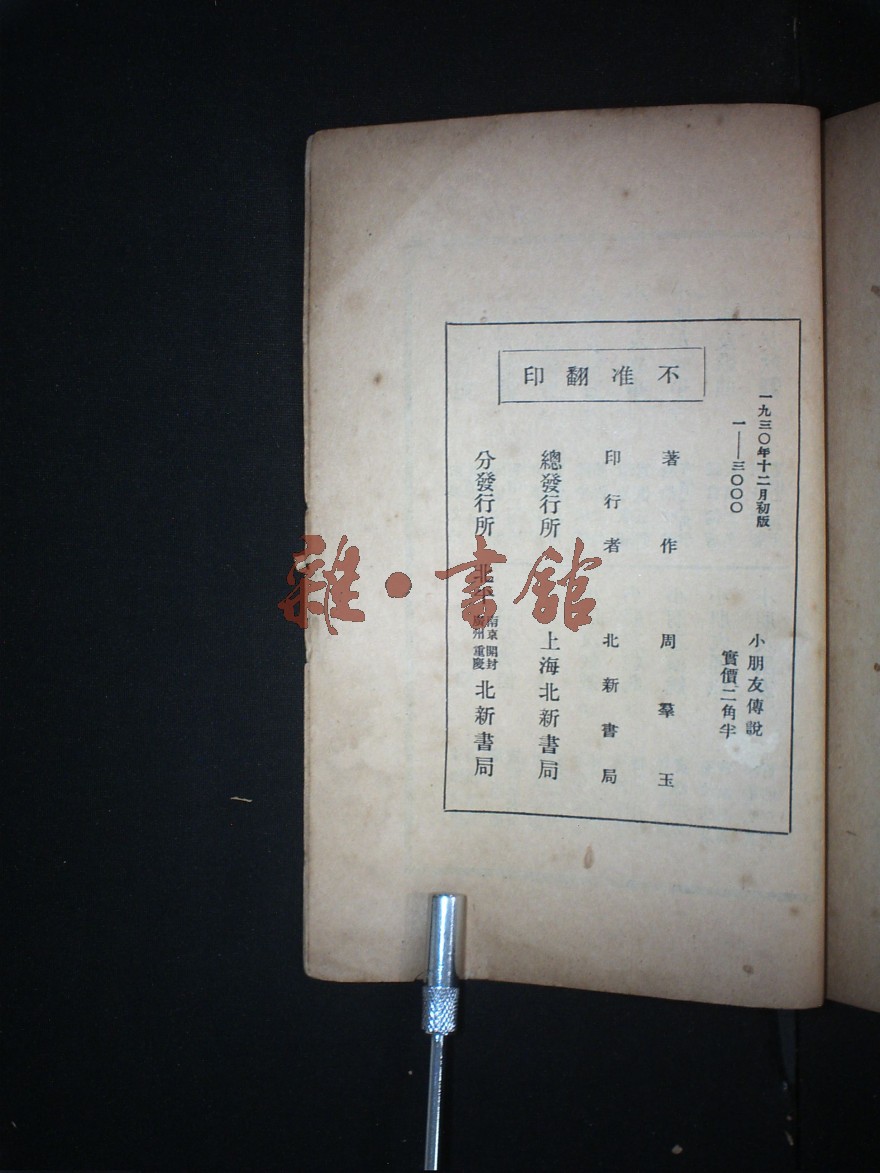 一九三〇年十二月初版
一——三〇〇〇
小朋友傳說
實價二角半
不准翻印
著作 周羣玉
印行者 北新書局
總發行所 上海北新書局
分發行所 北平 南京 開封 廣州 重慶 北新書局
雜·書館